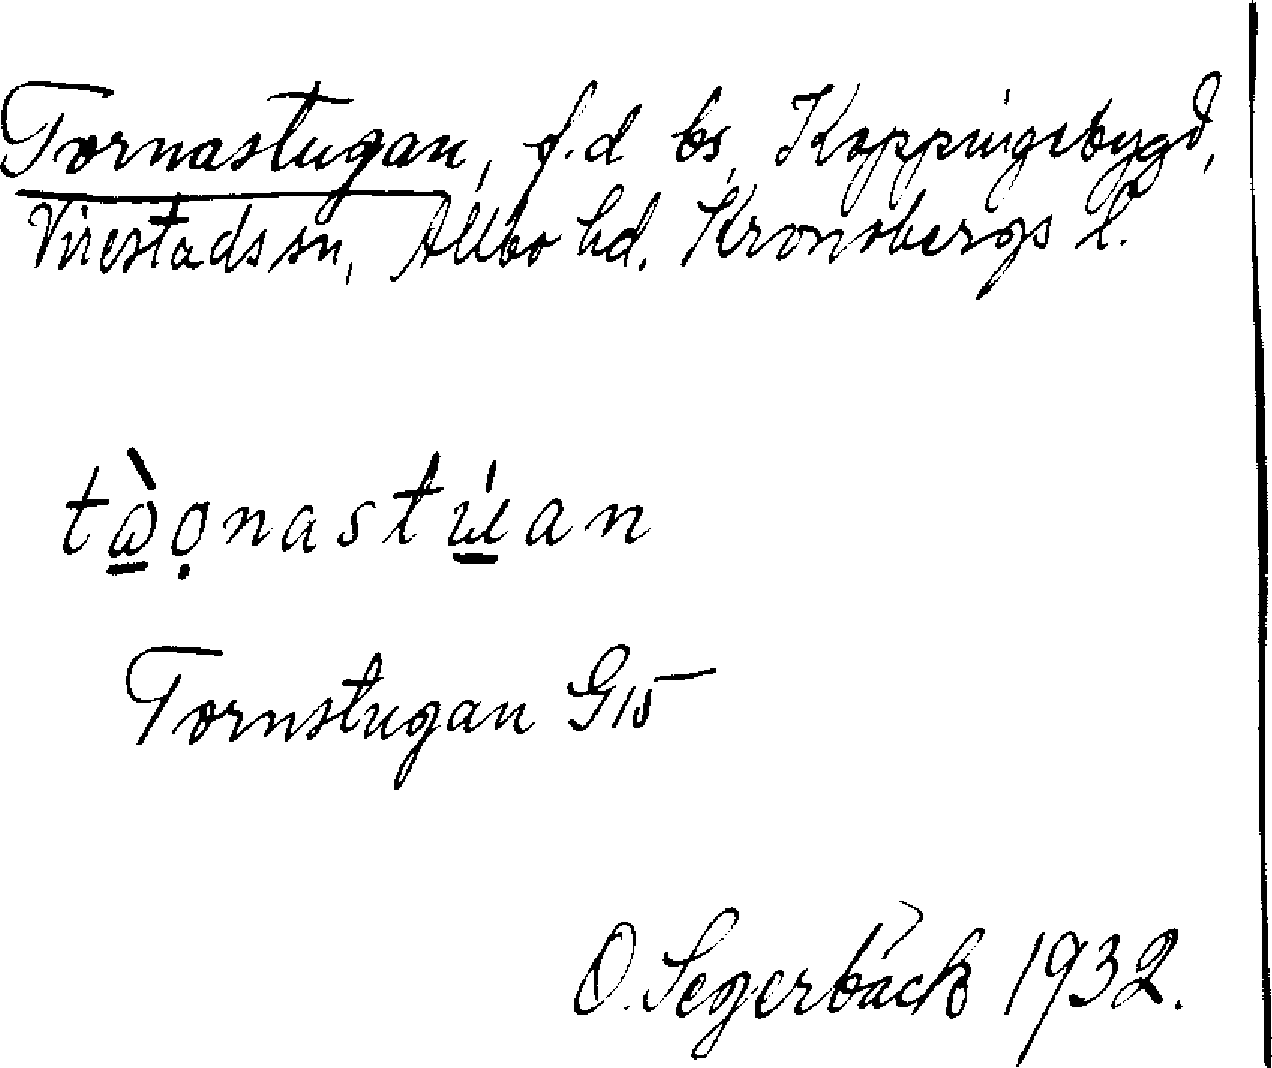 Tornastugan, f.d bs, Koppingebygd,
Virestads sn, Allbo hd. Kronobergs l.
tὼ̠o̤nastú̠an
Tornstugan G15
O. Segerbäck 1932.